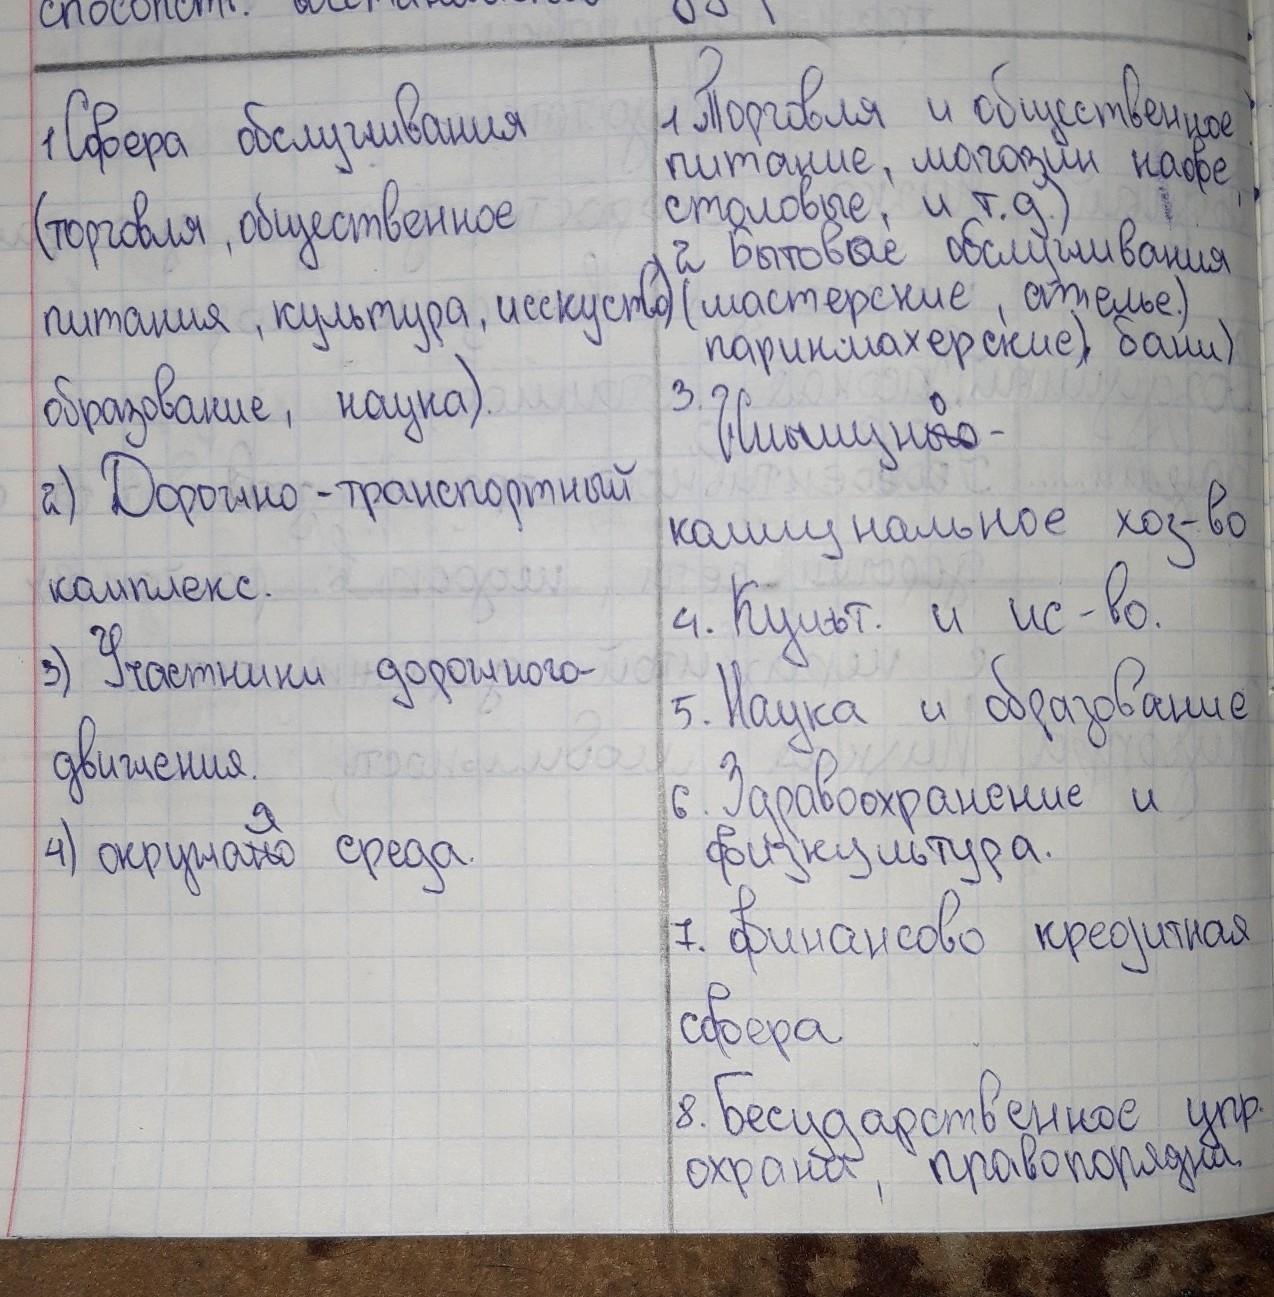 способст.
1 Сфера обслуживания
(торговля, общественное
питания, культура, исскуство)
образование, наука).
2) Дорожно-транспортный
комплекс.
3) Участники дорожного-
движения.
4) окружая среда.
1 Торговля и общественное
питание, магазин кафе,
столовые, и т.д.)
2 Бытовые обслуживания
(мастерские, ателье.)
парикмахерские), бани)
3.
Жилищно-
коммунальное хоз-во
4. Культ. и ис-во.
5. Наука и образование
6. Здравоохранение и
физкультура.
7. Финансово кредитная
сфера
8. Бесударственное упр.
охрана, правопорядка.